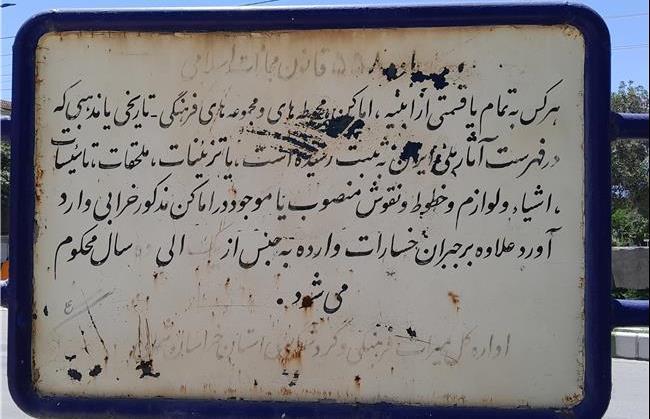 ماده ۵۵۸ قانون مجازات اسلامی
هر کس به تمام یا قسمتی از ابنیه ، اماکن ، محیط های و مجموعه های فرهنگی - تاریخی یا مذهبی که
در فهرست آثار ملی ایران به ثبت رسیده است ، یا تزئینات ، ملحقات ، تاسیسات
، اشیاء و لوازم و خطوط و نقوش منصوب یا موجود در اماکن مذکور خرابی وارد
آورد علاوه بر جبران خسارات وارده به حبس از الی سال محکوم
می شود .
اداره کل میراث فرهنگی و گردشگری استان خراسان